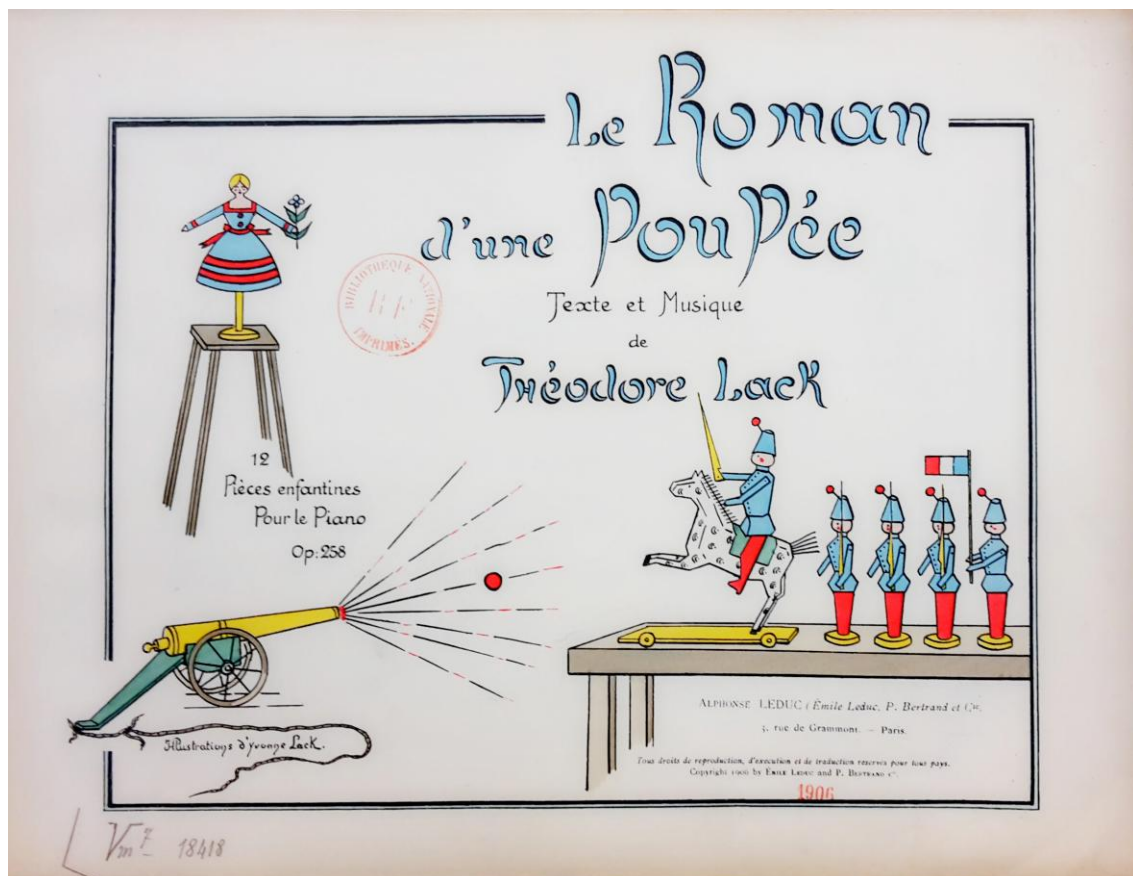 Le Roman
d'une Poupée
Texte et Musique
de
Théodore Lack
BIBLIOTHEQUE NATIONALE
IMPRIMÉS.
12
Pièces enfantines
Pour le Piano
Op: 258
Illustrations d'Yvonne Lack.
ALPHONSE LEDUC (Émile Leduc, P. Bertrand et Cie.
3, rue de Grammont. – Paris.
Tous droits de reproduction, d'exécution et de traduction réservés pour tous pays.
Copyright 1906 by ÉMILE LEDUC and P. BERTRAND Cº.
1906
Vm 7 18418